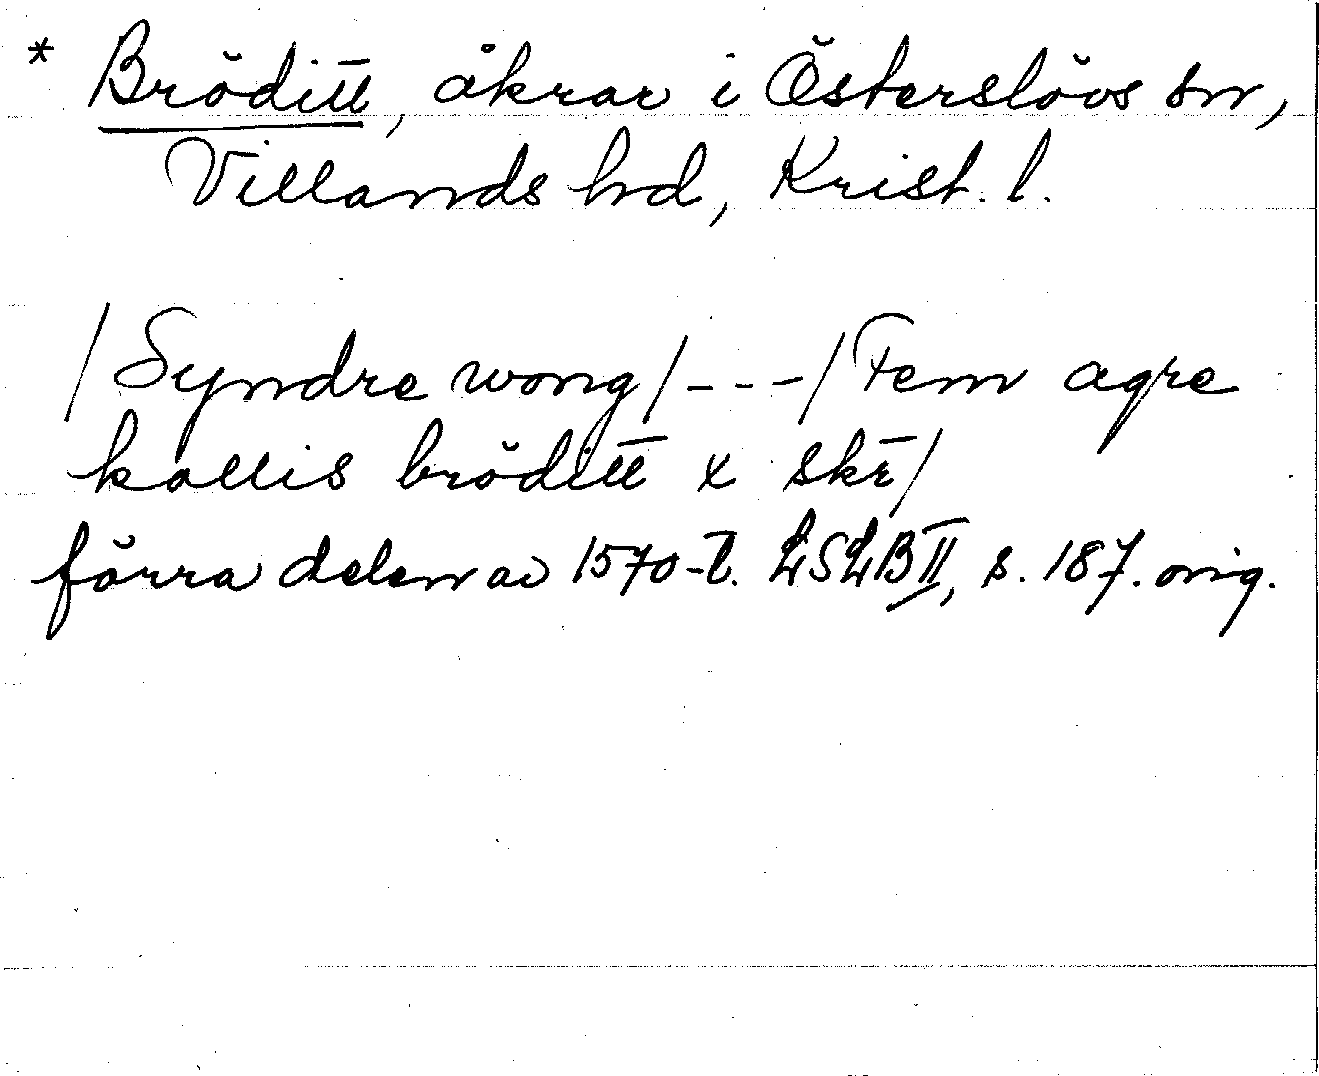 * Bröditt, åkrar i Österslövs sn,
Villands hd, Krist. l.
/Syndre wong/---/Fem agre
kallis bröditt x skr̄/
förra delen av 1570-t. LSLB II, s. 187. orig.